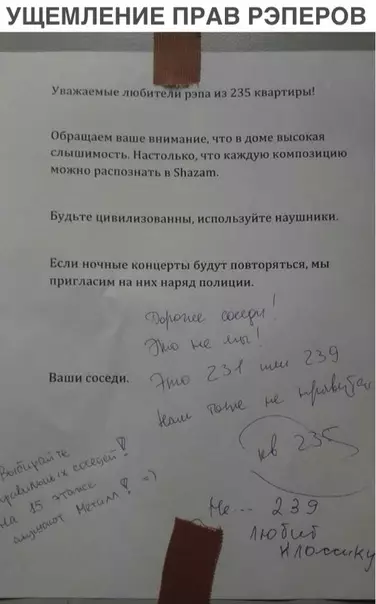 УЩЕМЛЕНИЕ ПРАВ РЭПЕРОВ
Уважаемые любители рэпа из 235 квартиры!
Обращаем ваше внимание, что в доме высокая
слышимость. Настолько, что каждую композицию
можно распознать в Shazam.
Будьте цивилизованны, используйте наушники.
Если ночные концерты будут повторяться, мы
пригласим на них наряд полиции.
Ваши соседи.
Дорогие соседи!
Это не мы!
Это 231 или 239
Нам тоже не нравится
кв 235
Выбирайте
правильных соседей!
На 15 этаже
слушают Металл! =)
Не... 239
любит
классику